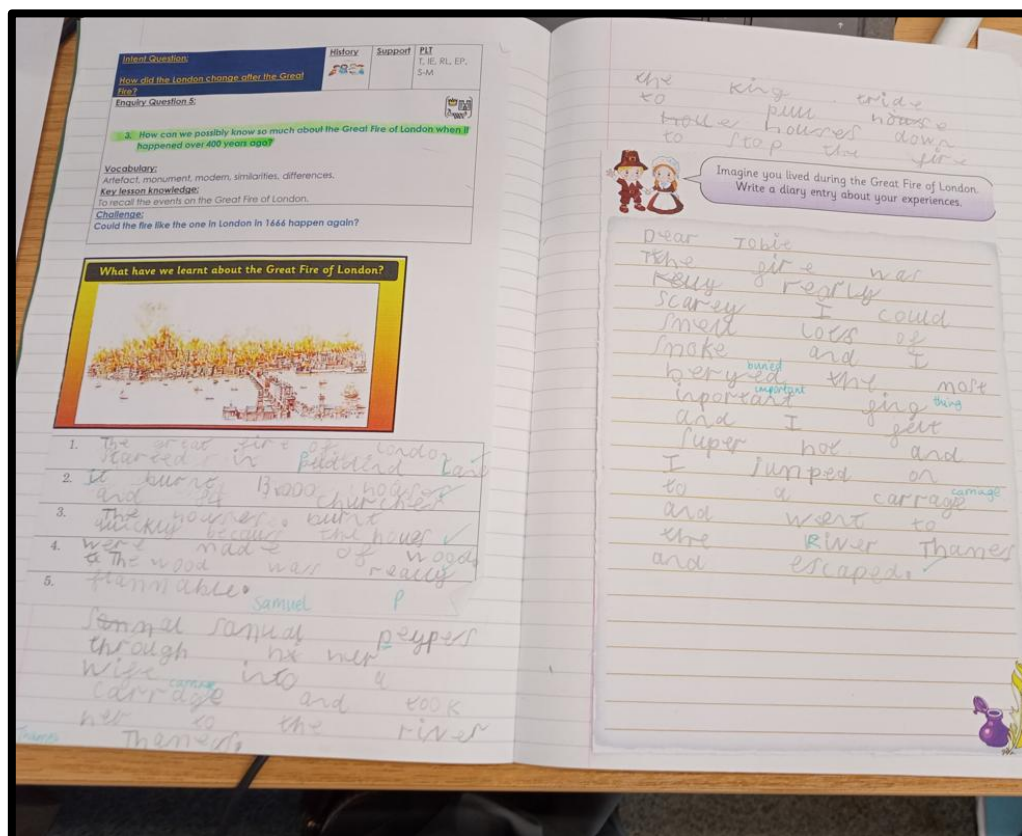 Intent Question:
How did the London change after the Great
Fire?
History
Support
PLT
T, IE, RL, EP,
S-M
Enquiry Question 5:
3. How can we possibly know so much about the Great Fire of London when it
happened over 400 years ago?
Vocabulary:
Artefact, monument, modern, similarities, differences.
Key lesson knowledge:
To recall the events on the Great Fire of London.
Challenge:
Could the fire like the one in London in 1666 happen again?
What have we learnt about the Great Fire of London?
1. The great fire of London
started in puddind Lane
2. It burnt 13000 houses
and churches
3. The houses burnt
quickly because the houses
4. were made of wood
The wood was really
5. flammable.
Samuel P
sanual peypers
through her
wife into a
carriage
carrage and took
her to the river
Thames
Thames.
the king tride
to pull house
houle houses down
to stop the fire
Imagine you lived during the Great Fire of London.
Write a diary entry about your experiences.
Dear Tobie
The fire was
really
scarey I could
smell lots of
smoke and I
buried
beryed the most
important thing
inportant
and I felt
super hot and
I jumped on
carriage
to a carrage
and went to
the River Thames
and escaped.